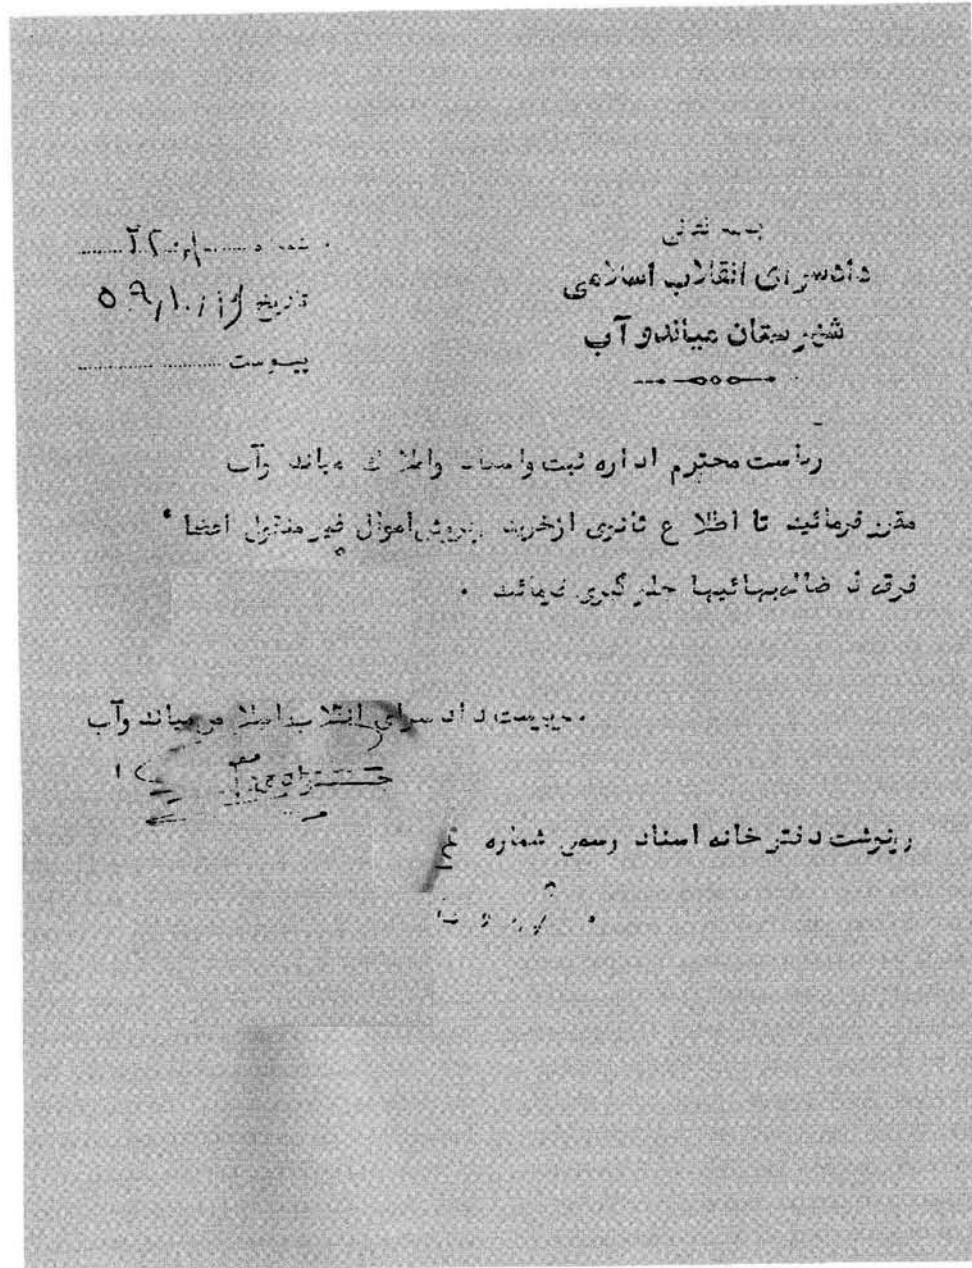 بسمه تعالی
دادسرای انقلاب اسلامی
شهرستان میاندوآب
شماره
تاریخ ۵۹/۱۰/
پیوست
ریاست محترم اداره ثبت واسناد واملا ک میاند وآب
مقرر فرمائید تا اطلا ع ثانوی ازخرید وفروش اموال غیر منقول اعضا ء
فرقه ضاله بهائیها جلو گیری نمائند .
سرپرست داد سرای انقلا ب اسلا می میاند وآب
رونوشت دفتر خانه اسناد رسمی شماره